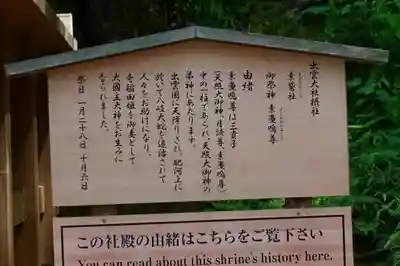 出雲大社摂社
素鵞社
御祭神 素戔嗚尊
由緒
素戔嗚尊は三貴子
(天照大御神、月読尊、素戔嗚尊)
中の一柱であられ、天照大御神の
弟神にあたります。
出雲國に天降りされ、肥河上に
於いて八岐大蛇を退治されて
人々をお助けになり、
奇稲田姫を御妻として
大國主大神をお生みに
なられました。
祭日 一月二十八日、十月六日
この社殿の由緒はこちらをご覧下さい
You can read about this shrine's history here.